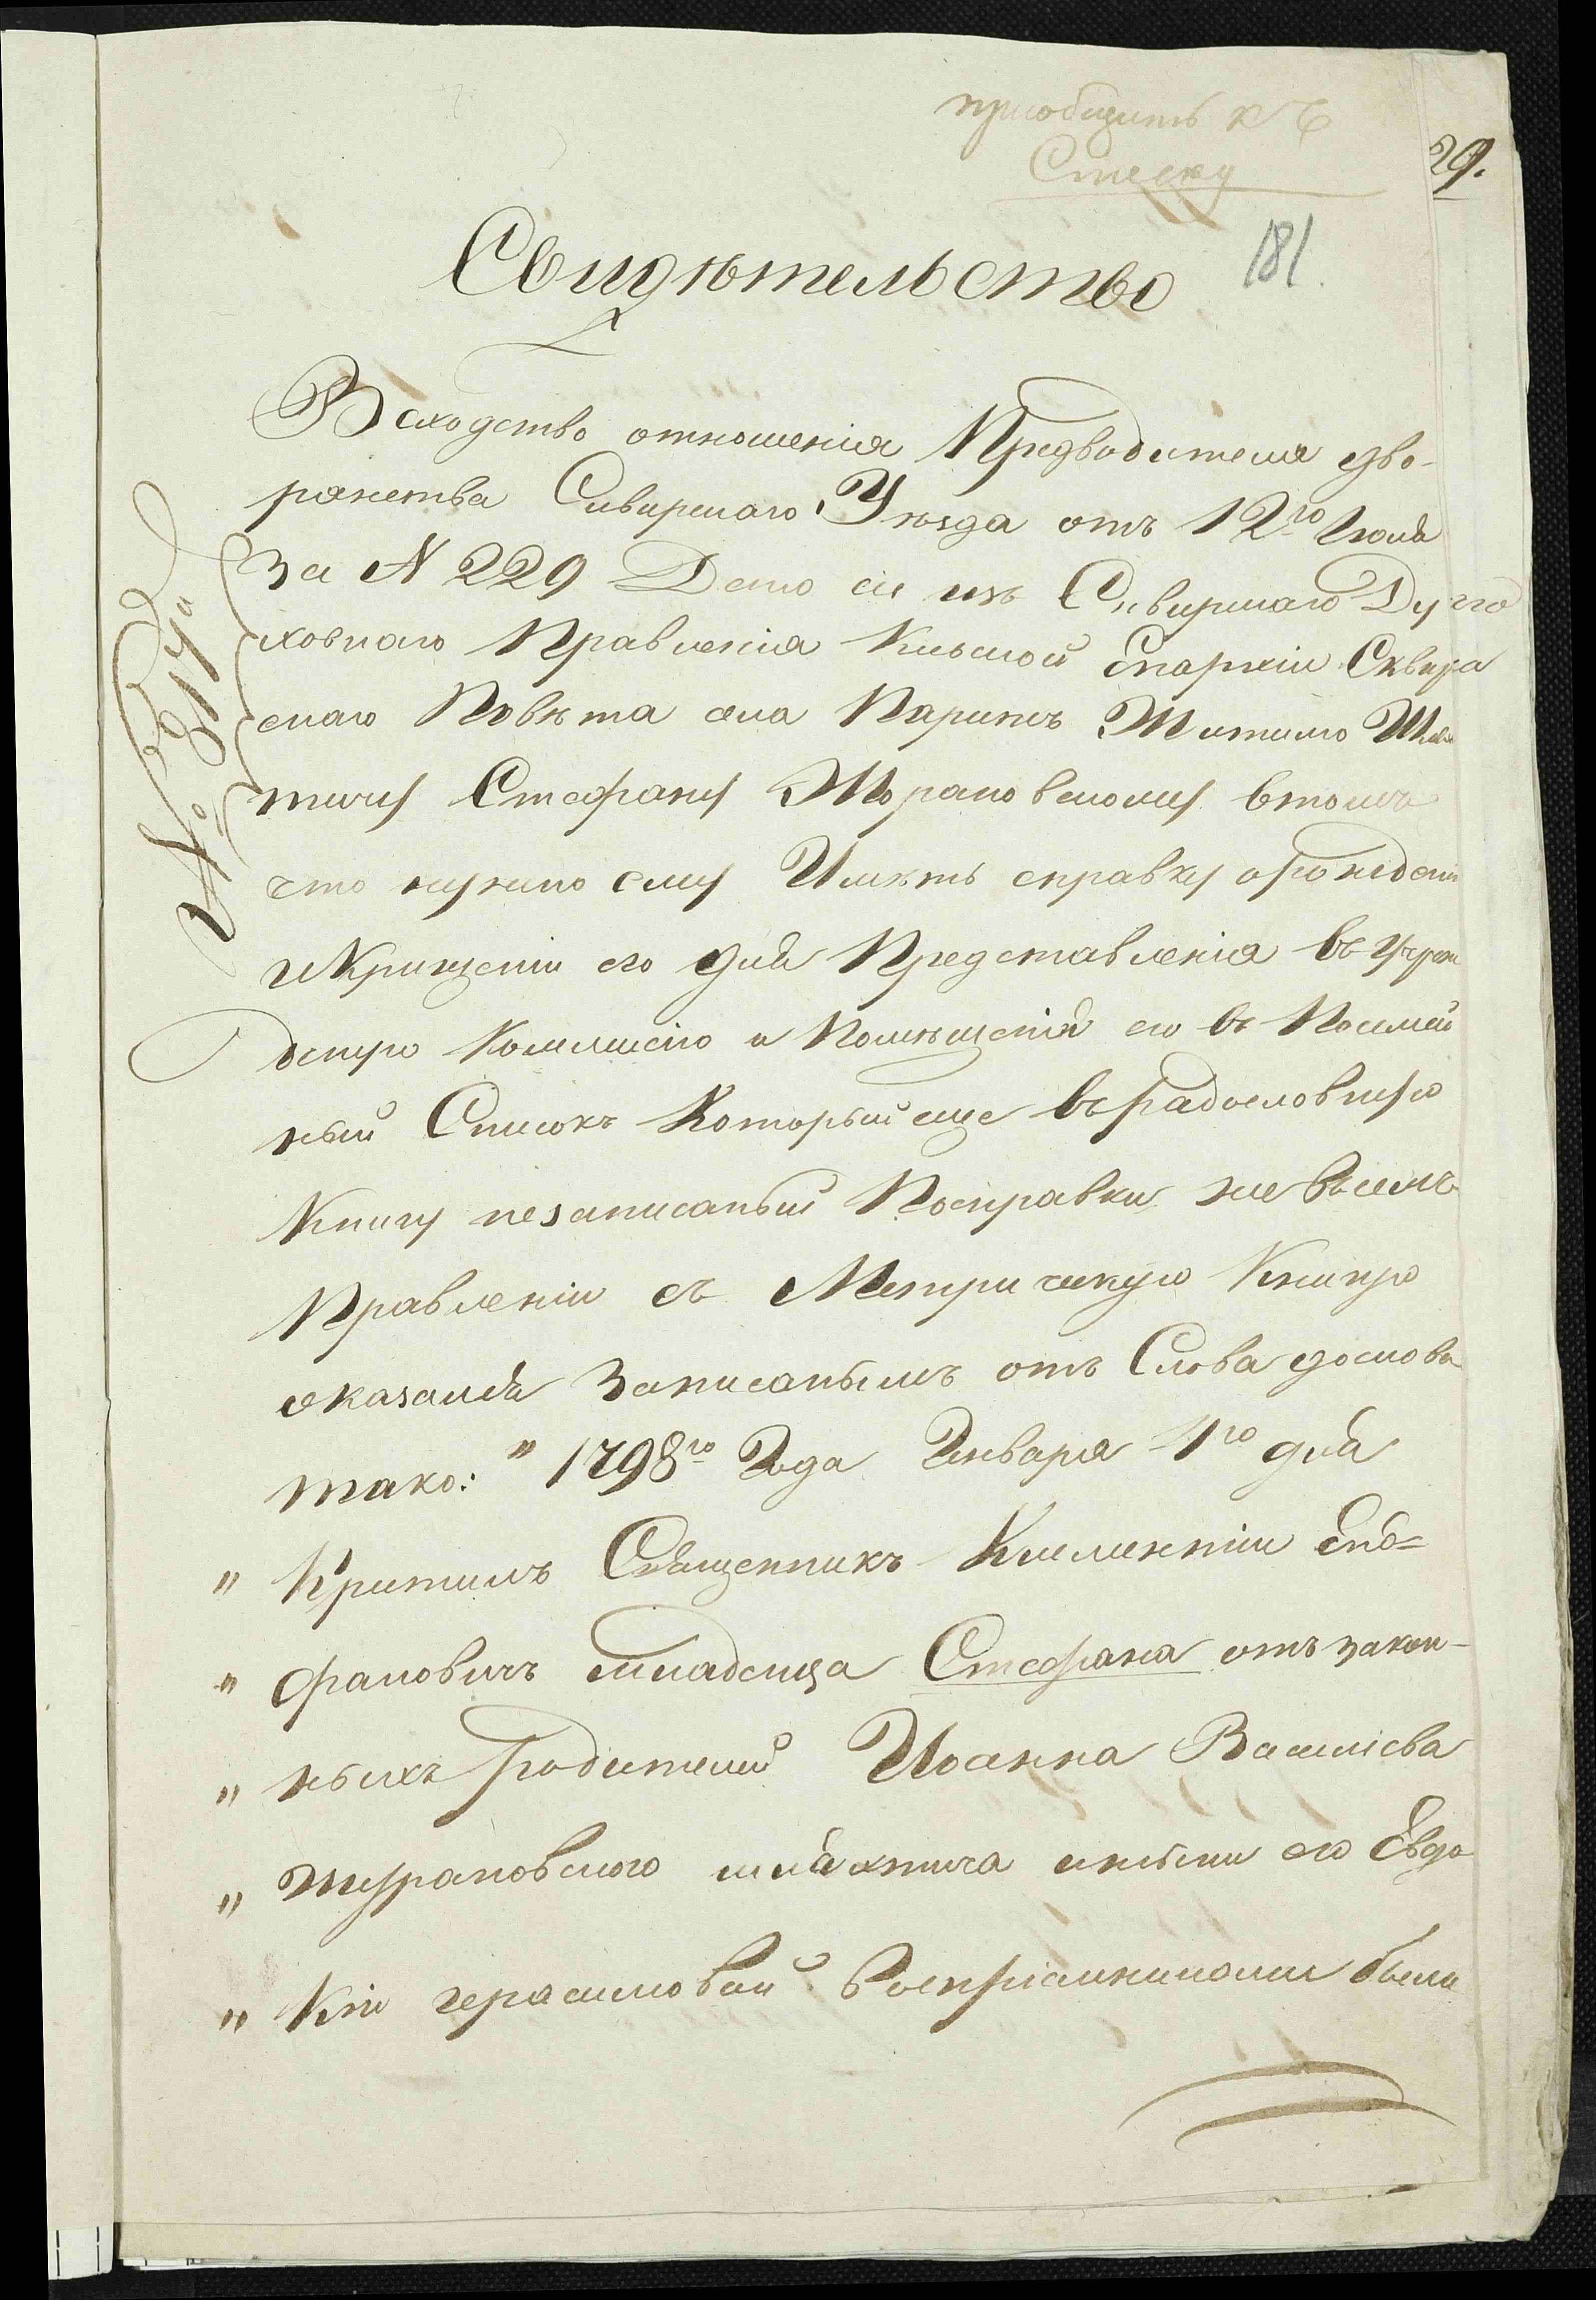 приобщить къ
Списку
29.
181.
Свидѣтельство
Всходство отношенія Предводителя дво-
рянства Сквирскаго Уѣзда отъ 12го Іюля
За N 229 Дано сіе изъ Сквирскаго Ду
ховнаго Правленія Кіевской Епархіи Сквир
скаго Повѣта села Парипсъ Жителю Шлях
тичу Стефану Жураковскому втомъ
что нужно ему Имѣть справку орожденіи
иКрищеніи его для Представленія въ Учреж
денную Коммисію и Помѣщенія его въ Посемей
ный Списокъ Который еще въ радословную
Книгу незаписаный Посправки же въсемъ
Правленіи съ Метрическую Книгую
оказалось Записанымъ отъ Слова дослова
тако: "1798го Года Января 1го дня
" Критилъ Священникъ Климентій Епо=
" фановичъ младенца Стефана отъ закон-
" ныхъ родителей Иоанна Василіева
" Жураковского шляхтича ижены его Евдо
" Кіи герасимовой Воспріемниками были
№ 814й